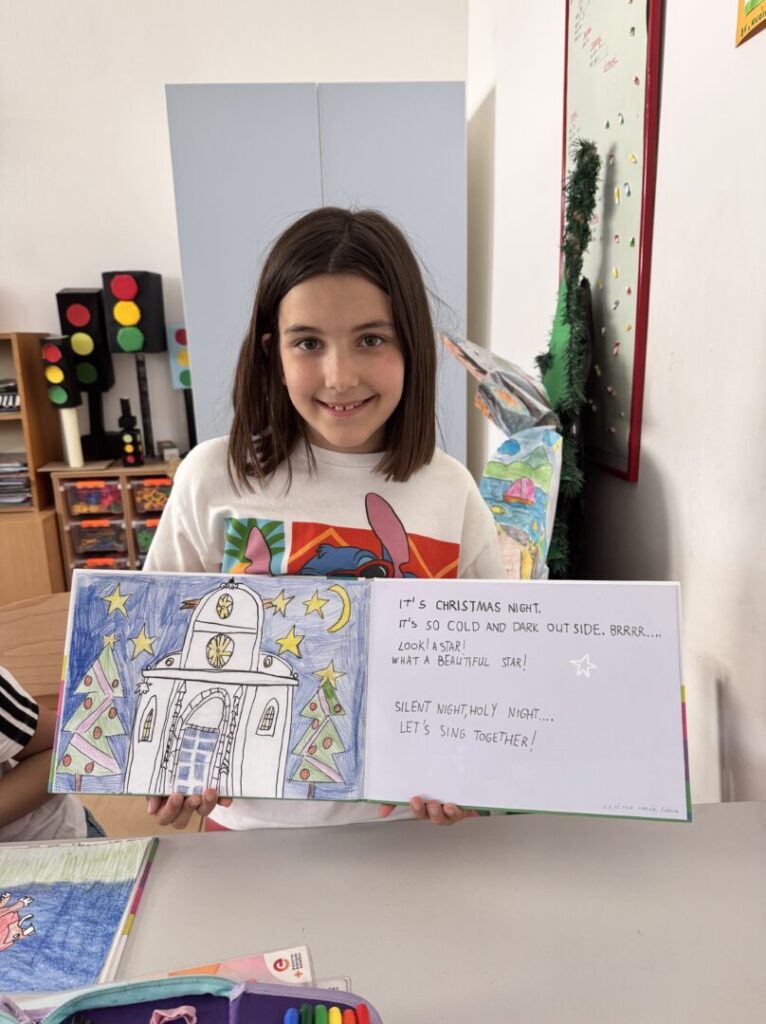 IT'S CHRISTMAS NIGHT.
IT'S SO COLD AND DARK OUT SIDE. BRRRR....
LOOK! A STAR!
WHAT A BEAUTIFUL STAR!
SILENT NIGHT, HOLY NIGHT....
LET'S SING TOGETHER!